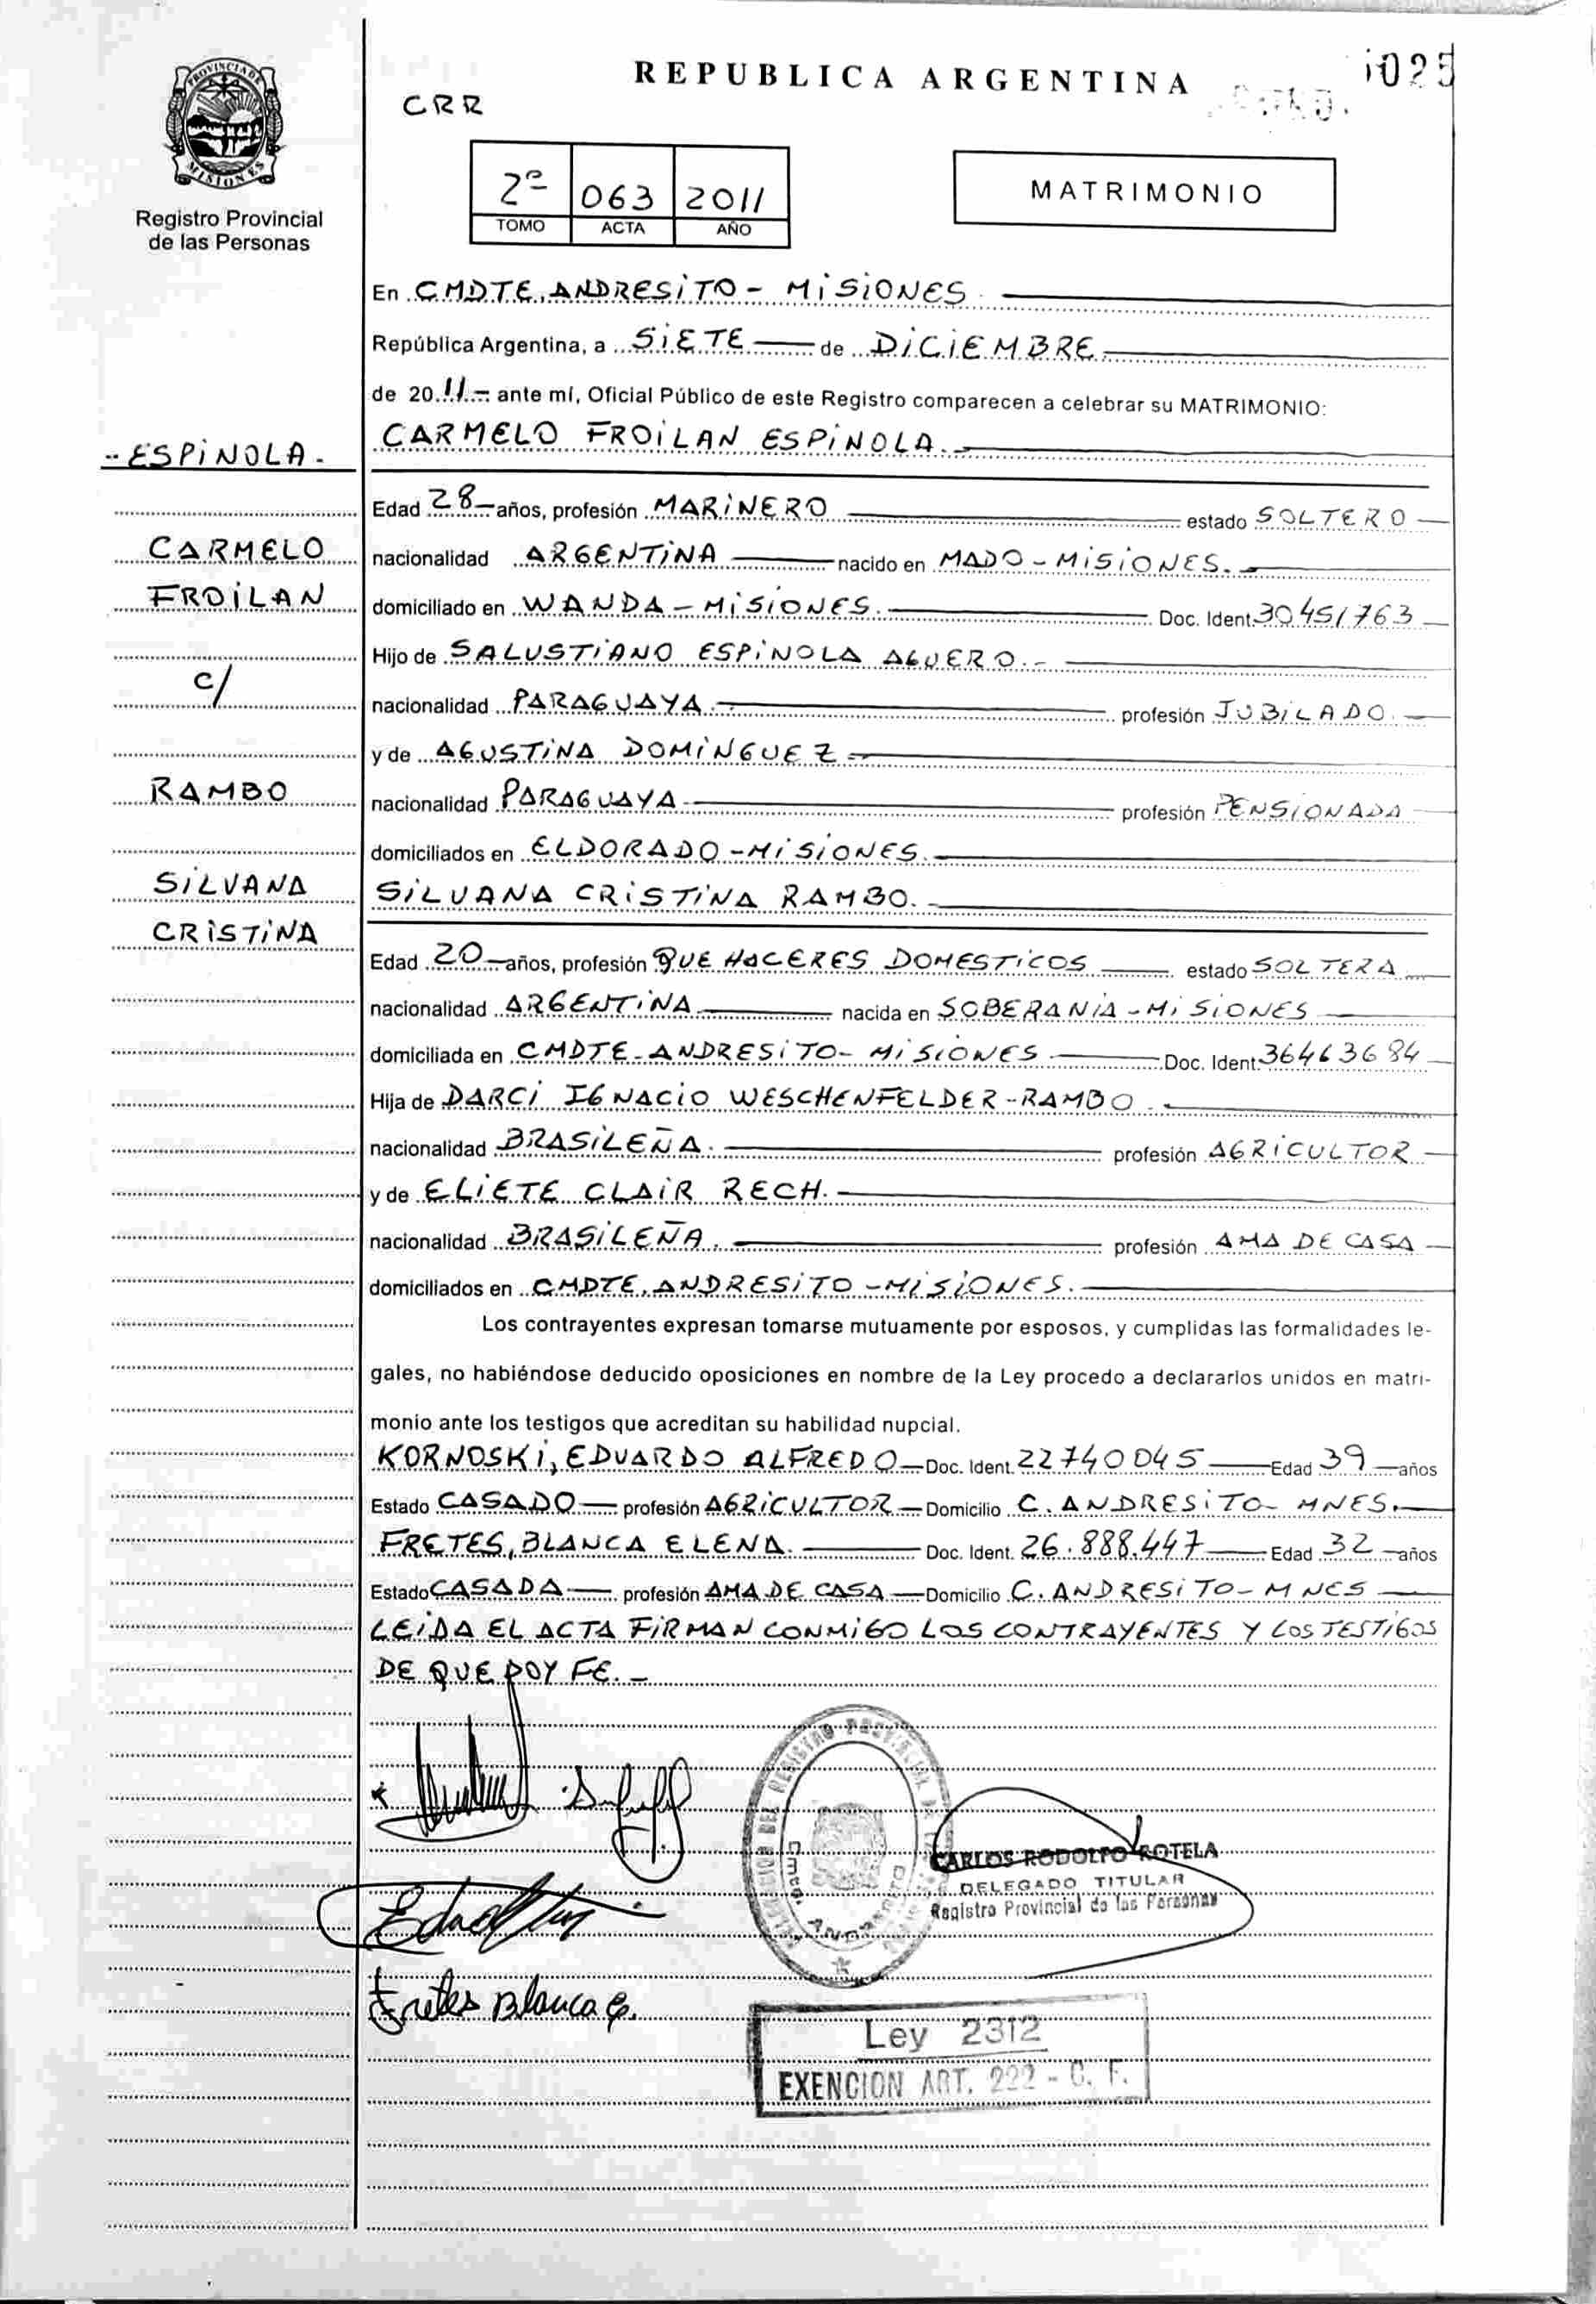 REPUBLICA ARGENTINA
CRR
PROVINCIA DE
MISIONES
Registro Provincial
de las Personas
2º 063 2011
TOMO ACTA AÑO
MATRIMONIO
En CMDTE. ANDRESiTO - MiSiONES.
República Argentina, a SiETE de DiCiEMBRE
de 2011.- ante mí, Oficial Público de este Registro comparecen a celebrar su MATRIMONIO:
CARMELO FROiLAN ESPiNOLA.-
Edad 28 años, profesión MARiNERO estado SOLTERO
nacionalidad ARGENTiNA nacido en MADO - MiSiONES.
domiciliado en WANDA - MiSiONES. Doc. Ident. 30451763
Hijo de SALUSTiANO ESPiNOLA AGUERO.-
nacionalidad PARAGUAYA.- profesión JUBiLADO.
y de AGUSTiNA DOMiNGUEZ
nacionalidad PARAGUAYA profesión PENSiONADA
domiciliados en ELDORADO - MiSiONES.
SiLVANA CRiSTiNA RAMBO.
Edad 20 años, profesión QUE HACERES DOMESTiCOS estado SOLTERA
nacionalidad ARGENTiNA nacida en SOBERANiA - MiSiONES
domiciliada en CMDTE - ANDRESiTO - MiSiONES Doc. Ident. 36463684
Hija de DARCi IGNACiO WESCHENFELDER - RAMBO.
nacionalidad BRASiLEÑA. profesión AGRiCULTOR
y de ELiETE CLAiR RECH.
nacionalidad BRASiLEÑA. profesión AMA DE CASA
domiciliados en CMDTE. ANDRESiTO - MiSiONES.
Los contrayentes expresan tomarse mutuamente por esposos, y cumplidas las formalidades le-
gales, no habiéndose deducido oposiciones en nombre de la Ley procedo a declararlos unidos en matri-
monio ante los testigos que acreditan su habilidad nupcial.
KORNOSKi, EDUARDO ALFREDO Doc. Ident. 22740045 Edad 39 años
Estado CASADO profesión AGRiCULTOR Domicilio C. ANDRESiTO - MNES.
FRETES, BLANCA ELENA. Doc. Ident. 26.888.447 Edad 32 años
Estado CASADA profesión AMA DE CASA Domicilio C. ANDRESiTO - MNES
LEiDA EL ACTA FiRMAN CONMiGO LOS CONTRAYENTES Y LOS TESTiGOS
DE QUE DOY FE.-
- ESPiNOLA -
CARMELO
FROiLAN
c/
RAMBO
SiLVANA
CRiSTiNA
CARLOS RODOLFO ROTELA
DELEGADO TITULAR
Registro Provincial de las Personas
Fretes Blanca E.
Ley 2312
EXENCION ART. 222 - C. F.